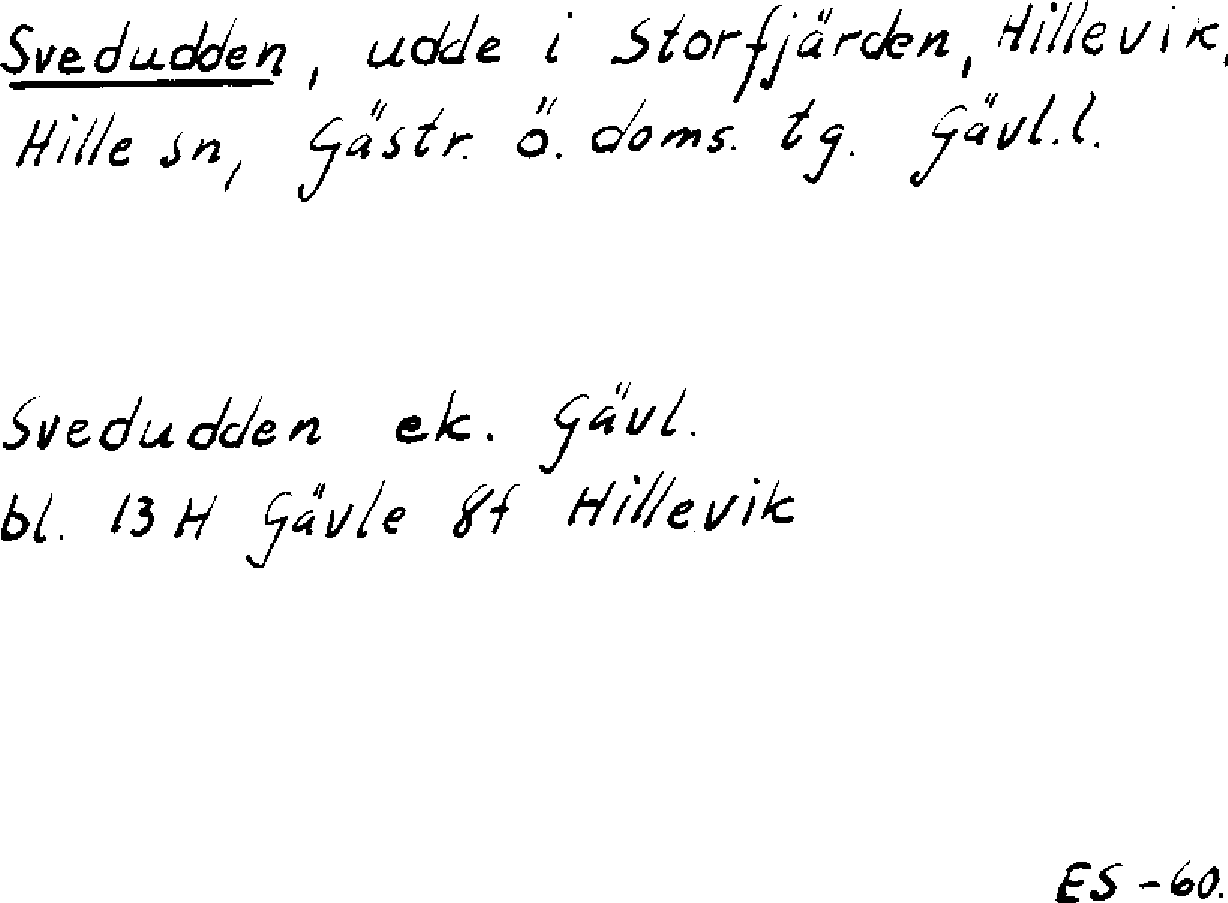 Svedudden, udde i Storfjärden, Hillevik,
Hille sn, Gästr. ö. doms. tg. Gävl.l.
Svedudden ek. Gävl.
bl. 13 H Gävle 8f Hillevik
ES -60.